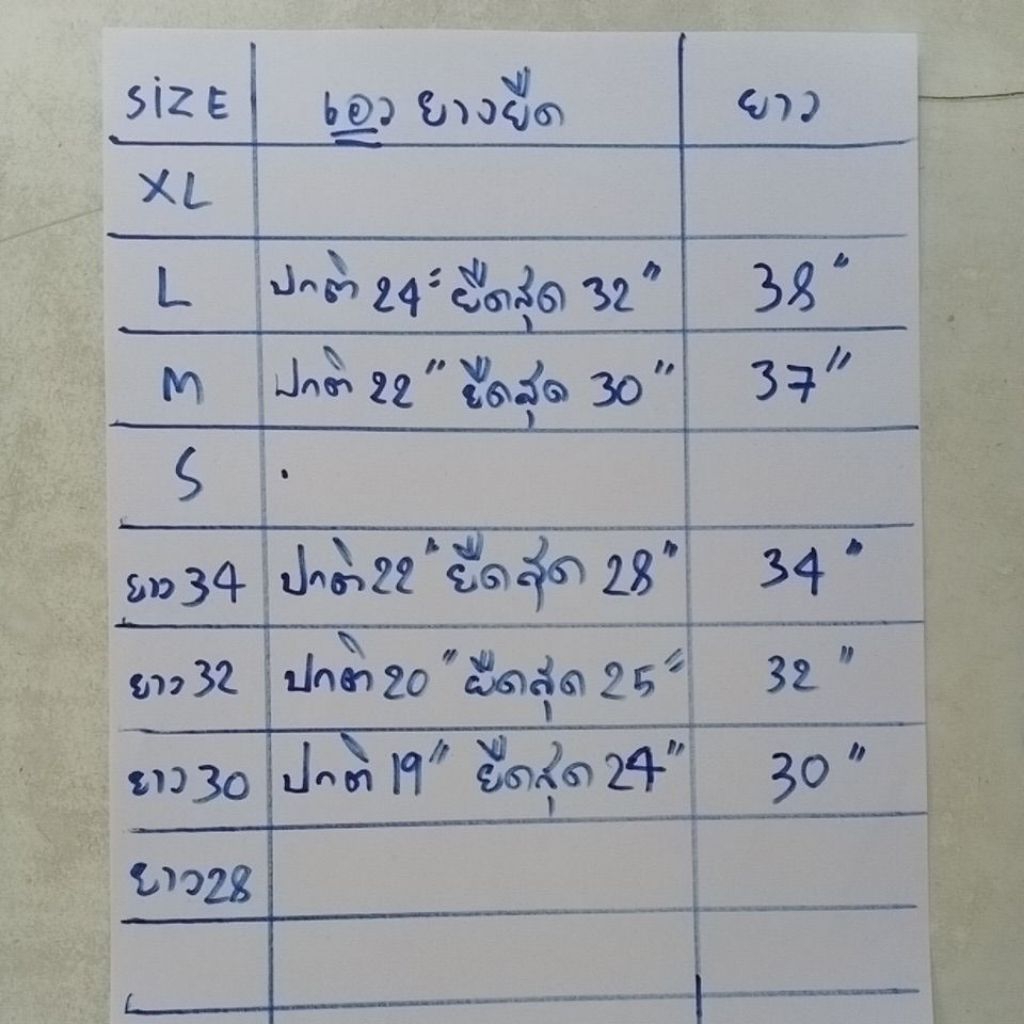 SIZE เอว ยางยืด ยาว
XL
L ปกติ 24" ยืดสุด 32" 38"
M ปกติ 22" ยืดสุด 30" 37"
S
ยาว 34 ปกติ 22" ยืดสุด 28" 34"
ยาว 32 ปกติ 20" ยืดสุด 25" 32"
ยาว 30 ปกติ 19" ยืดสุด 24" 30"
ยาว 28